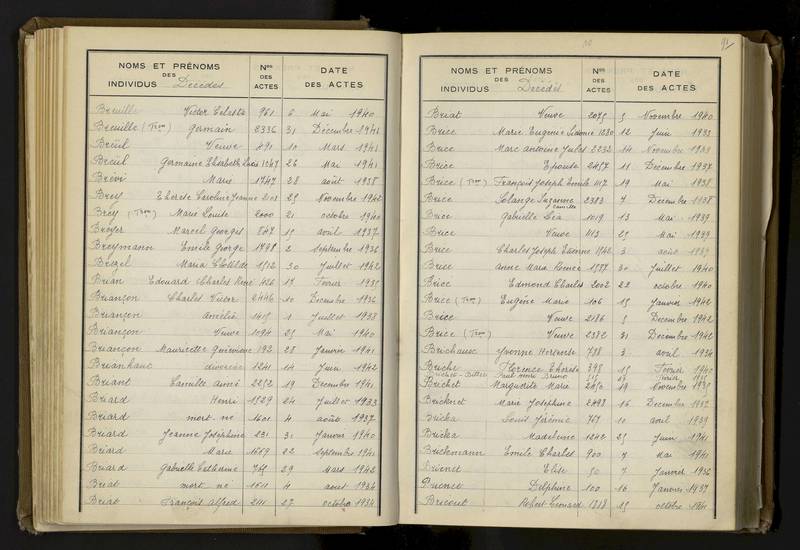 NOMS ET PRÉNOMS DES INDIVIDUS Décédés Nos DES ACTES DATE DES ACTES
Breuille Victor Céleste 961 6 Mai 1940
Breuille (Tron) Germain 2336 31 Décembre 1941
Breüil Veuve 491 10 Mars 1941
Breüil Germaine Elisabeth 26 Mai 1941
Brévi Marie 1747 28 août 1938
Brey Thérèse Caroline Jeanne 25 Novembre 1942
Brey (Tron) Marie Louise 2000 21 octobre 1940
Breyer Marcel Georges 867 15 avril 1937
Breymann Emile George 1498 2 Septembre 1936
Brezel Maria Clotilde 1512 30 Juillet 1942
Brian Edouard Charles René 426 17 Février 1935
Briançon Charles Victor 2446 10 Décembre 1936
Briançon Amélia 1415 1 Juillet 1938
Briançon Veuve 1094 25 Mai 1940
Briançon Mauricette Geneviève 192 28 Janvier 1941
Brianhanc divorcée 1241 14 Juin 1942
Briant Camille Aimé 2252 19 Décembre 1941
Briard Henri 1529 24 Juillet 1933
Briard mort-né 1601 4 août 1937
Briard Jeanne Joséphine 231 31 Janvier 1940
Briard Marie 1669 22 septembre 1941
Briard Gabrielle Catherine 745 29 Mars 1942
Briat mort né 1511 4 août 1934
Briat François Alfred 2111 27 octobre 1934
NOMS ET PRÉNOMS DES INDIVIDUS Décédés Nos DES ACTES DATE DES ACTES
Briat Veuve 2075 5 Novembre 1940
Brice Marie Eugénie 1230 12 Juin 1933
Brice Marc Antoine Jules 2232 14 Novembre 1933
Brice Epouse 2457 11 Décembre 1937
Brice (Tron) François Joseph Emile 1117 19 Mai 1938
Brice Solange Suzanne Camille 2383 7 Décembre 1938
Brice Gabrielle Léa 1019 13 Mai 1939
Brice Veuve 1113 25 Mai 1939
Brice Charles Joseph Etienne 1542 3 août 1939
Brice Anne Maria 1537 30 Juillet 1940
Brice Edmond Charles 2002 22 octobre 1940
Brice (Tron) Eugène Marie 106 15 Janvier 1942
Brice Veuve 2186 5 Décembre 1942
Brice (Tron) Veuve 2382 31 Décembre 1942
Brichanec Yvonne 788 3 avril 1934
Briche Florence Thérèse 398 15 Février 1940
Brichet Marguerite Marie 2450 19 Novembre 1935
Bricknet Marie Joséphine 2498 16 Décembre 1937
Bricka Louis Jérémie 767 10 avril 1939
Bricka Madeleine 1242 25 Juin 1941
Brickmann Emile Charles 900 7 Mai 1941
Bricnet Elise 50 7 Janvier 1936
Briconet Delphine 100 16 Janvier 1937
Bricout Robert Léonard 1888 25 octobre 1941